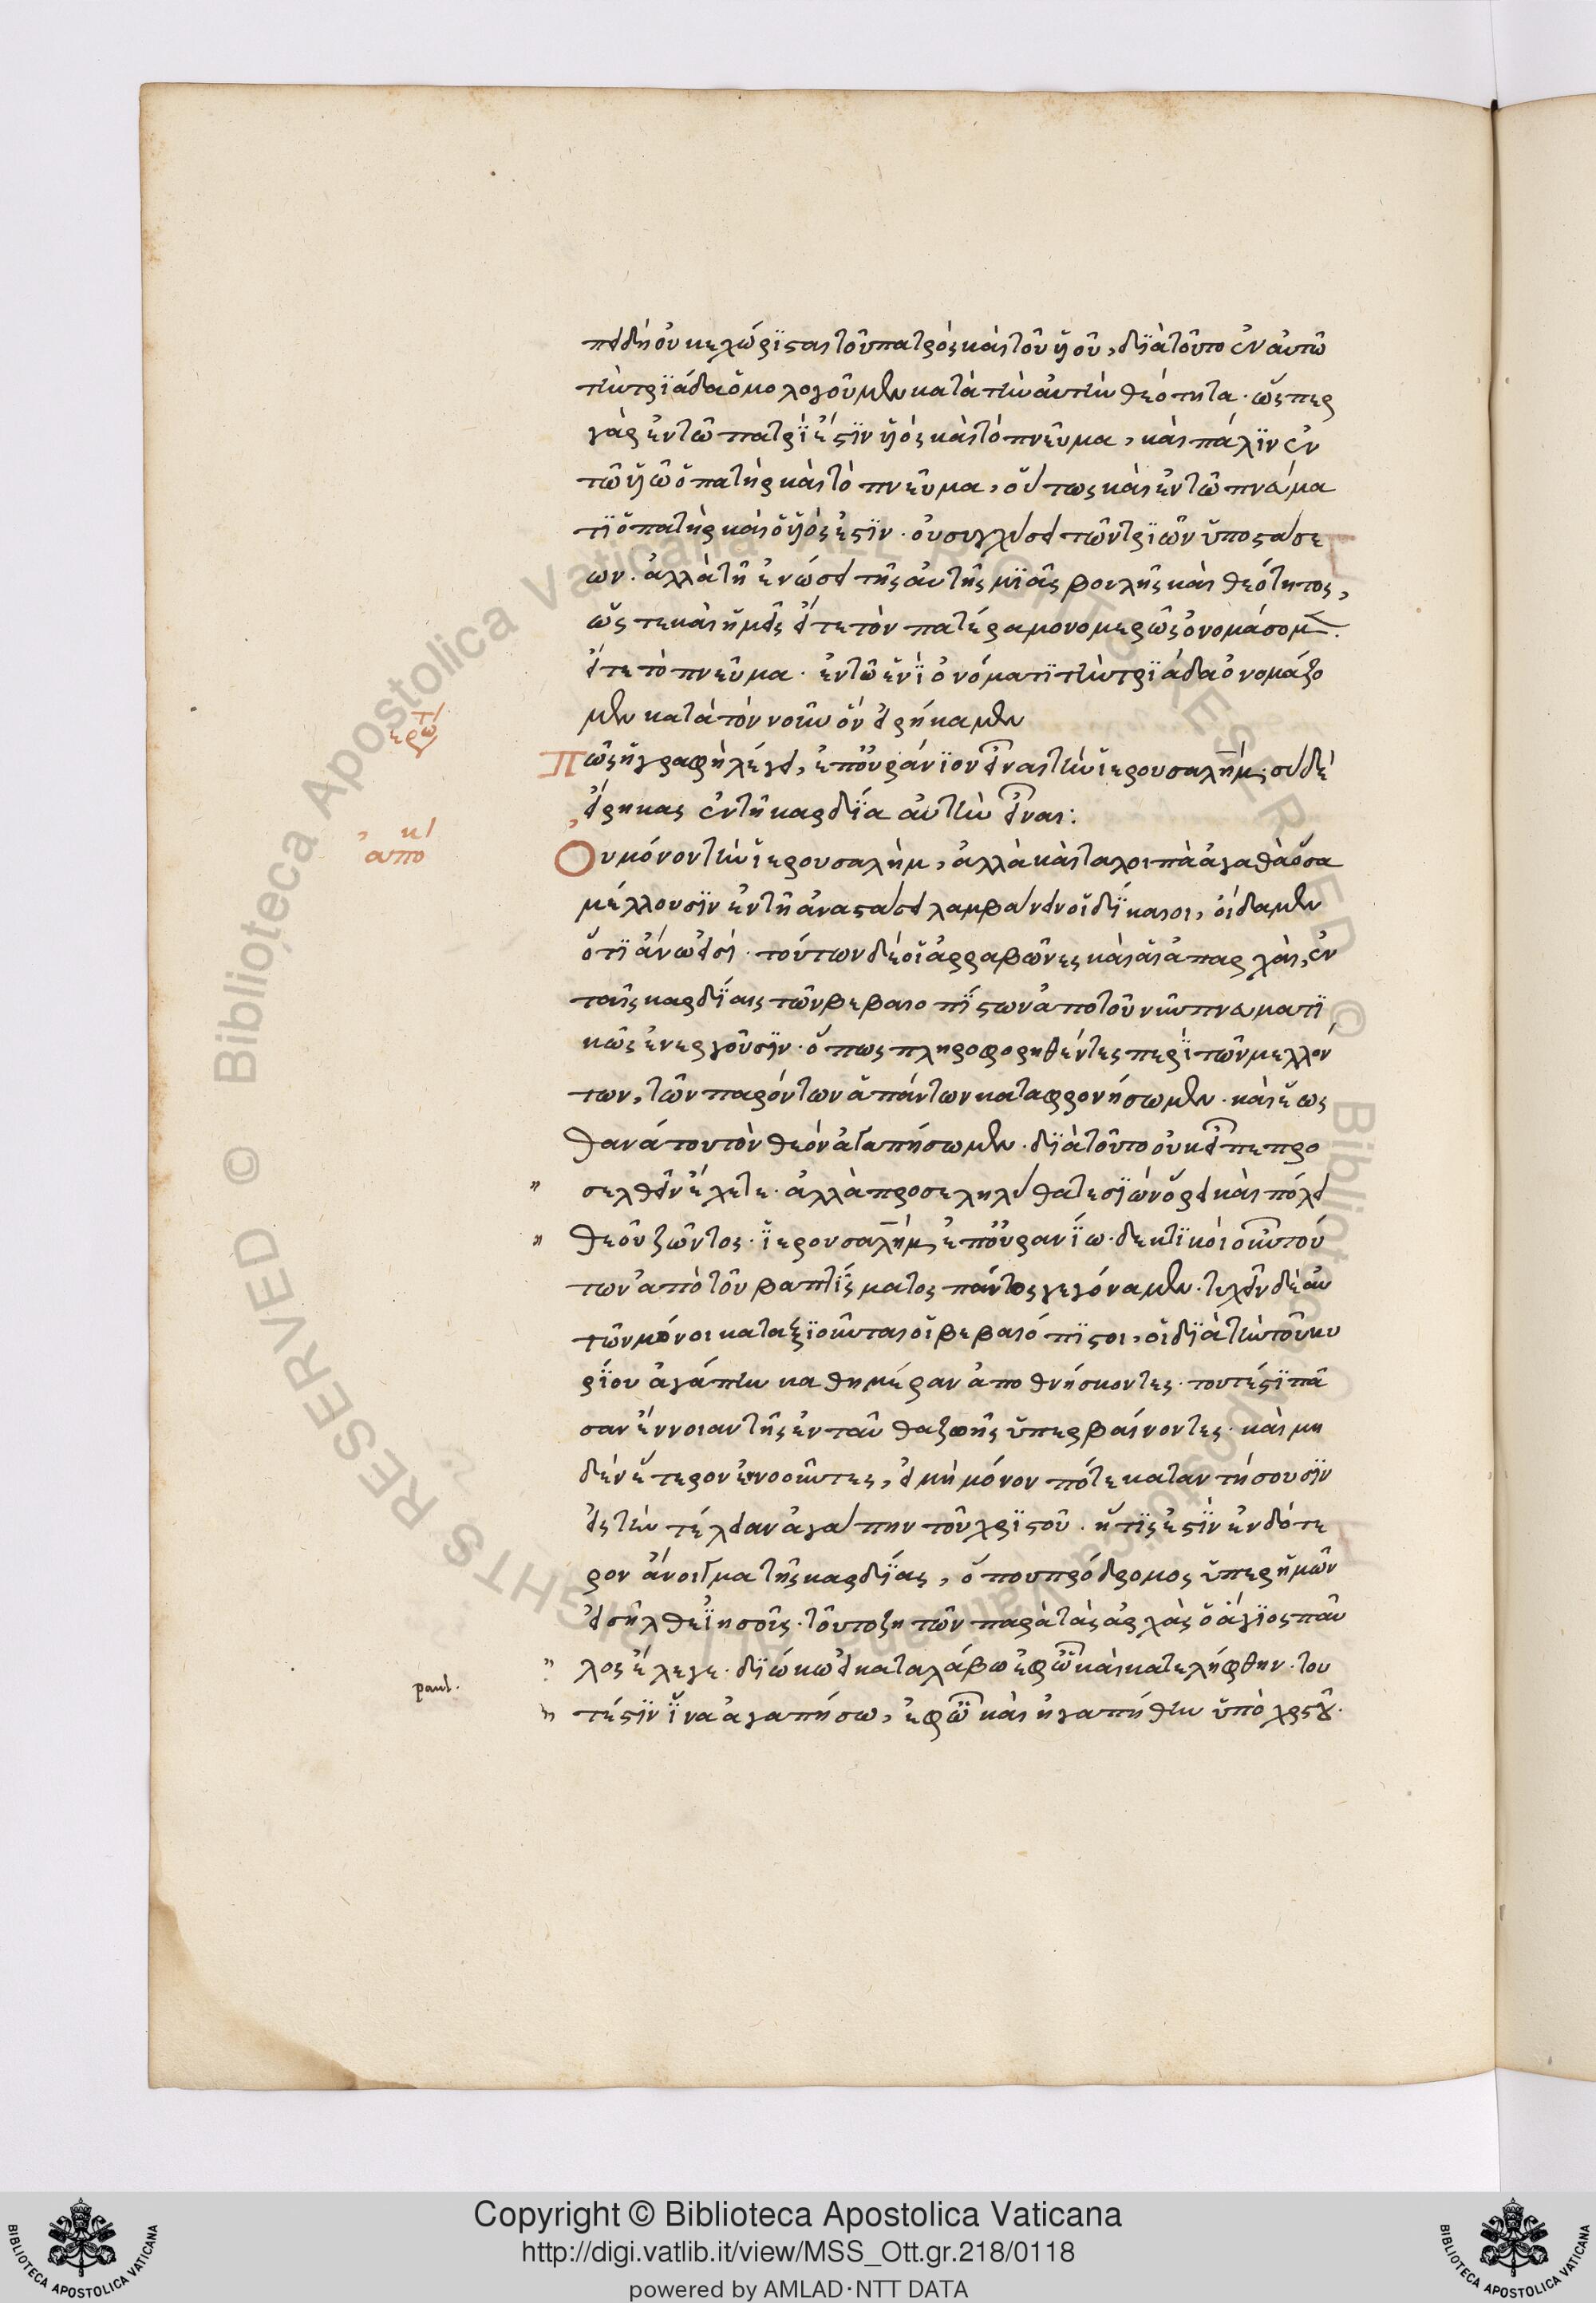 πειδὴ οὐ κεχώρϊσται τοῦ πατρὸς καὶ τοῦ ϋἱοῦ, δϊὰ τοῦτο ἐν αὐτῶ
τὴν τρϊάδα ὁμολογοῦμεν κατὰ τὴν αὐτὴν θεότητα · ὥσπερ
γὰρ ἐν τῶ πατρΐ ἐστϊν ϋἱὸς καὶ τὸ πνεῦμα, καὶ πάλϊν ἐν
τῶ ϋἱῶ ὁ πατὴρ καὶ τὸ πνεῦμα, οὕτως καὶ ἐν τῶ πνεύμα
τϊ ὁ πατὴρ καὶ ὁ ϋἱός ἐστϊν · οὐ συγχύσει τῶν τρϊῶν ὑποστάσε
ων · ἀλλὰ τῆ ἑνώσει τῆς αὐτῆς μϊᾶς βουλῆς καὶ θεότητος,
ὥστε καὶ ἡμεῖς εἴτε τὸν πατέρα μονομερῶς ὀνομάσομεν ·
εἴτε τὸ πνεῦμα · ἐν τῶ ἑνῒ ὀνόματϊ τὴν τρϊάδα ὀνομάζο
μεν κατὰ τὸν νοῦν ὃν εἰρήκαμεν
ἐρώτ
Πῶς ἡ γραφὴ λέγει, ἐπουράνϊον εἶναι τὴν ἱερουσαλήμ, σὺ δὲ
εἴρηκας ἐν τῆ καρδΐα αὐτὴν εἶναι :
ἀπόκ
Οὐ μόνον τὴν ἱερουσαλὴμ, ἀλλὰ καὶ τα λοιπὰ ἀγαθὰ ὅσα
μέλλουσϊν ἐν τῆ ἀναστάσει λαμβάνειν οἱ δΐκαιοι, οἴδαμεν
ὅτϊ ἄνω εἰσί · τούτων δὲ οἱ ἀρραβῶνες καὶ αἱ ἀπαρχαὶ, ἐν
ταῖς καρδΐαις τῶν βεβαιοπΐστων ἀπο τοῦ νῦν πνευματϊ
κῶς ἐνεργοῦσϊν · ὅπως πληροφορηθέντες περῒ τῶν μελλόν
των, τῶν παρόντων ἁπάντων καταφρονήσωμεν · καὶ ἕως
θανάτου τὸν θεὸν ἀγαπήσωμεν · δϊὰ τοῦτο οὐκ εἶπε προ
" σελθεῖν ἔχετε · ἀλλὰ προσεληλύθατε σϊὼν ὄρει καὶ πόλει
" θεοῦ ζῶντος · ἱερουσαλήμ, ἐπουρανΐω · δεκτϊκοὶ οὖν τού
των ἀπὸ τοῦ βαπτΐσματος πάντες γεγόναμεν · τυχεῖν δὲ αὐ
τῶν μόνοι καταξϊοῦνται οἱ βεβαιόπϊστοι, οἱ δϊὰ τὴν τοῦ κυ
ρΐου ἀγάπην καθημέραν ἀποθνήσκοντες · τουτέστϊ πᾶ
σαν ἔννοιαν τῆς ἐνταῦθα ζωῆς ὑπερβαίνοντες · καὶ μη
δὲν ἕτερον ἐννοοῦντες, εἰ μὴ μόνον πότε καταντήσουσϊν
εἰς τὴν τέλειαν ἀγάπην τοῦ χρϊστοῦ · ἥτϊς ἐστῒν ἐνδότε
ρον ἄνοιγμα τῆς καρδΐας, ὅπου πρόδρομος ὑπερ ἡμῶν
εἰσῆλθε ἰησοῦς · τοῦτο ζητῶν παρὰ τὰς ἀρχὰς ὁ ἅγϊος παῦ
" λος ἔλεγε · δϊώκω εἰ καταλάβω ἐφ ὧ καὶ κατελήφθην · του
paul.
" τέστϊν ἵνα ἀγαπήσω, ἐφ ὧ καὶ ἠγαπήθην ὑπὸ χρστοῦ ·
Copyright © Biblioteca Apostolica Vaticana
http://digi.vatlib.it/view/MSS_Ott.gr.218/0118
powered by AMLAD·NTT DATA